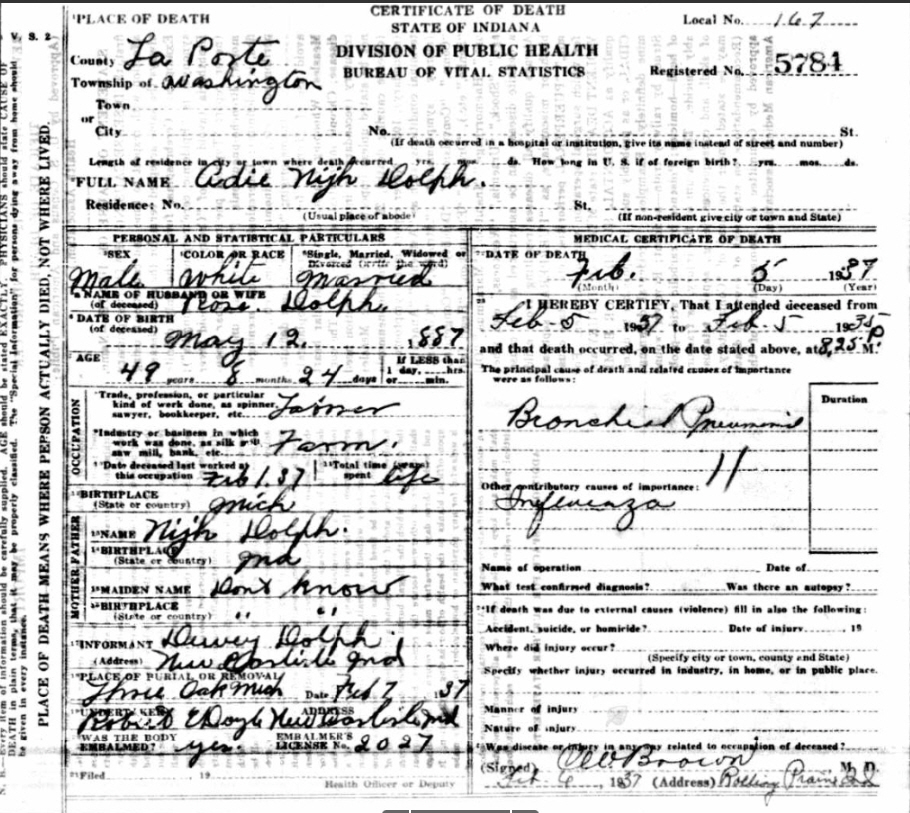 V. S. 2
N. B.—Every item of information should be carefully supplied. AGE should be stated EXACTLY. PHYSICIANS should state CAUSE OF
DEATH in plain terms, that it may be properly classified. The "Special Information" for persons dying away from home should
be given in every instance.
PLACE OF DEATH MEANS WHERE PERSON ACTUALLY DIED, NOT WHERE LIVED
PLACE OF DEATH
CERTIFICATE OF DEATH
STATE OF INDIANA
DIVISION OF PUBLIC HEALTH
BUREAU OF VITAL STATISTICS
Local No. 167
Registered No. 5784
County La Porte
Township of Washington
Town
or
City No. St.
(If death occurred in a hospital or institution, give its name instead of street and number)
Length of residence in city or town where death occurred yrs. mos. ds. How long in U. S. if of foreign birth? yrs. mos. ds.
FULL NAME Adie Nijh Dolph.
Residence: No. St.
(Usual place of abode) (If non-resident give city or town and State)
PERSONAL AND STATISTICAL PARTICULARS
SEX COLOR OR RACE Single, Married, Widowed or
Divorced (write the word)
Male White Married
NAME OF HUSBAND OR WIFE
(of deceased) Rose Dolph.
DATE OF BIRTH
(of deceased)
May 12, 1887
AGE If LESS than
1 day, hrs.
or min.
49 years 8 months 24 days
OCCUPATION
Trade, profession, or particular
kind of work done, as spinner,
sawyer, bookkeeper, etc. Farmer
Industry or business in which
work was done, as silk mill,
saw mill, bank, etc. Farm.
Date deceased last worked at
this occupation Feb 1. 37
Total time (years)
spent life
BIRTHPLACE
(State or country) Mich
FATHER
NAME Nijh Dolph.
BIRTHPLACE
(State or country) Ind
MOTHER
MAIDEN NAME Dont know
BIRTHPLACE
(State or country) " "
INFORMANT Dewey Dolph.
(Address) New Carlisle Ind
PLACE OF BURIAL OR REMOVAL
Three Oak Mich Date Feb 7 1937
UNDERTAKER ADDRESS
Robert E Doyle New Carlisle, Ind
WAS THE BODY
EMBALMED? yes.
EMBALMER'S
LICENSE No. 2027
Filed 19
Health Officer or Deputy
MEDICAL CERTIFICATE OF DEATH
DATE OF DEATH
Feb. 5 1937
(Month) (Day) (Year)
I HEREBY CERTIFY, That I attended deceased from
Feb-5 1937 to Feb-5 1935
and that death occurred, on the date stated above, at 8,25 P M.
The principal cause of death and related causes of importance
were as follows:
Duration
Bronchial Pneumonia
11
Other contributory causes of importance:
Influenza
Name of operation Date of
What test confirmed diagnosis? Was there an autopsy?
If death was due to external causes (violence) fill in also the following:
Accident, suicide, or homicide? Date of injury 19
Where did injury occur?
(Specify city or town, county and State)
Specify whether injury occurred in industry, in home, or in public place.
Manner of injury
Nature of injury
Was disease or injury in any way related to occupation of deceased?
(Signed) Brown M. D.
Feb 6, 1937 (Address) Rolling Prairie Ind